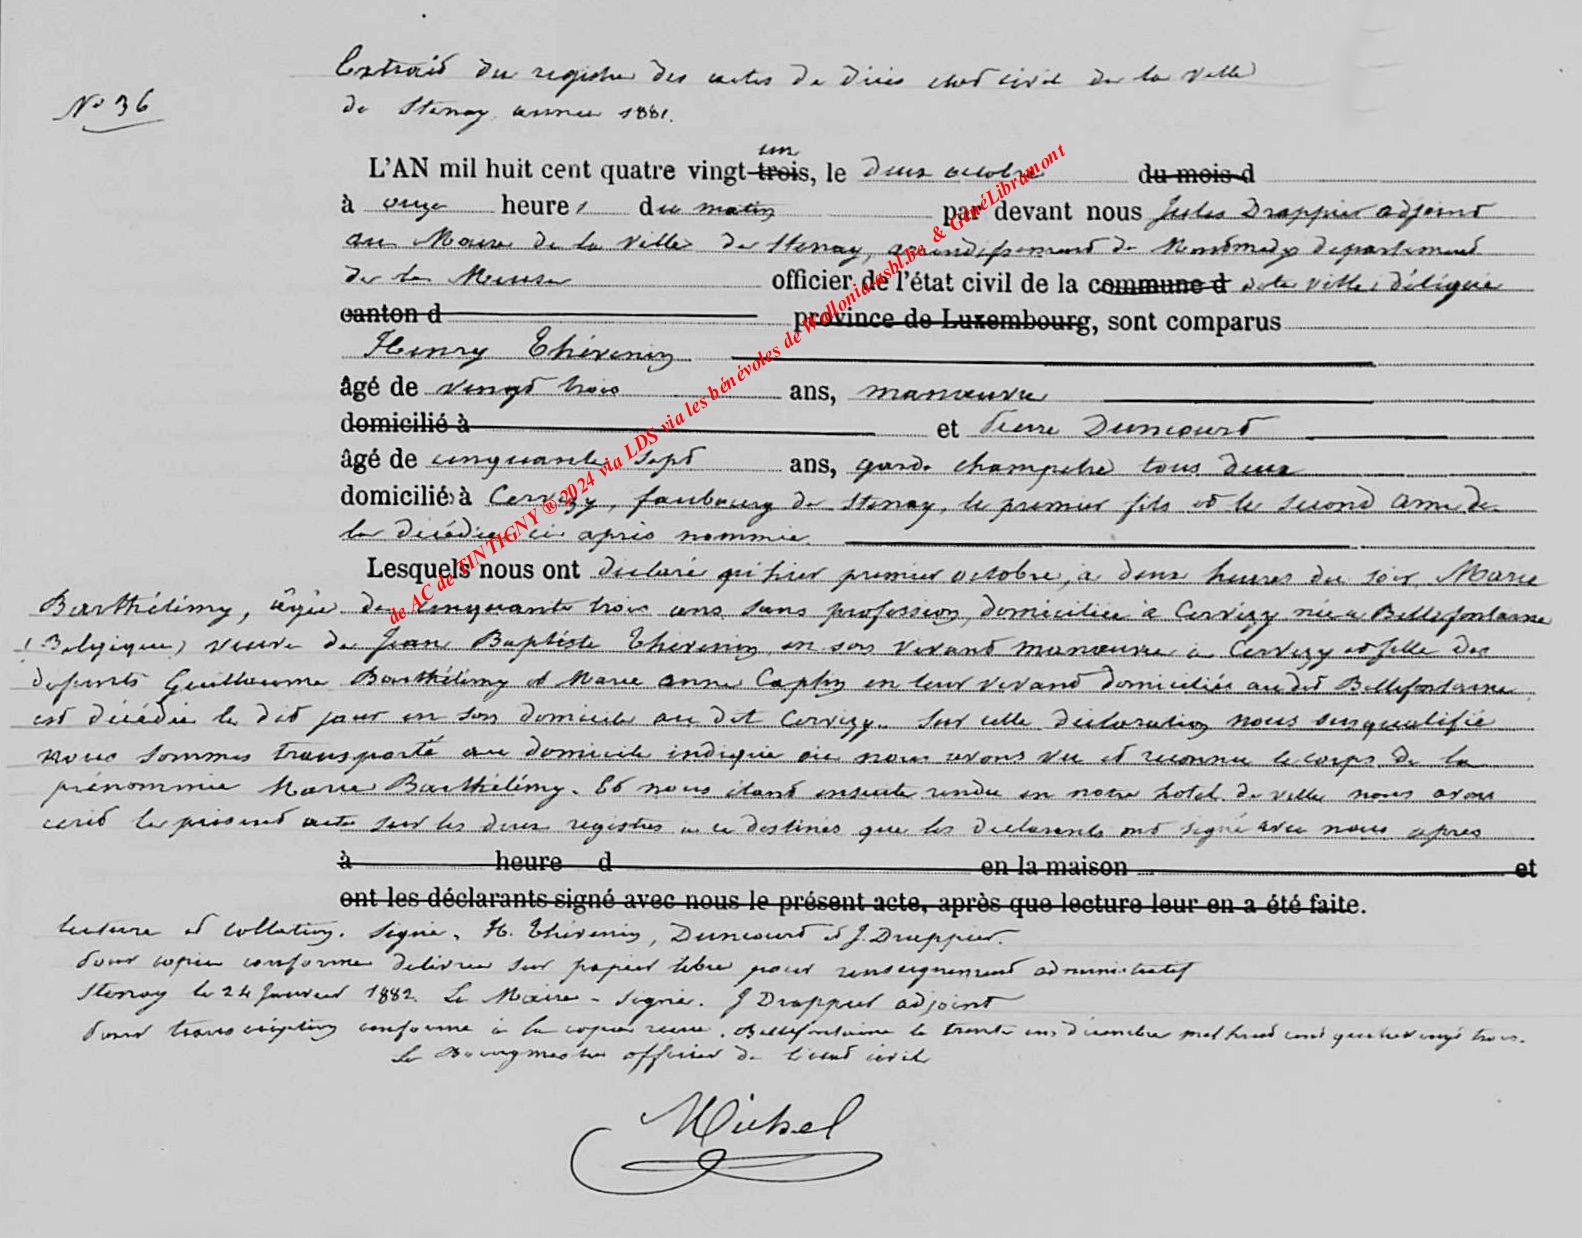 Extrait du registre des actes de décès état civil de la ville
N° 36
de Stenay année 1881.
un
L'AN mil huit cent quatre vingt-trois, le deux octobre du mois d
à onze heures du matin par devant nous Jules Drappier adjoint
au Maire de la ville de Stenay, arrondissement de Montmédy département
de la Meuse officier de l'état civil de la commune d dite ville, délégué
canton d province de Luxembourg, sont comparus
Henry Thévenin
âgé de vingt trois ans, manœuvre
domicilié à et Pierre Duncourt
âgé de cinquante sept ans, garde champêtre tous deux
domiciliés à Cervizy, faubourg de Stenay, le premier fils et le second ami de
la décédée ci après nommée.
Lesquels nous ont déclaré qu'hier premier octobre, à deux heures du soir, Marie
Barthélémy, âgée de cinquante trois ans, sans profession, domiciliée à Cervizy née à Bellefontaine
(Belgique) veuve de Jean Baptiste Thévenin en son vivant manœuvre à Cervizy et fille des
défunts Guillaume Barthélémy et Marie anne Caphy en leur vivant domiciliés audit Bellefontaine
est décédée le dit jour en son domicile au dit Cervizy. Sur cette déclaration nous susqualifié
nous sommes transporté au domicile indiqué où nous avons vu et reconnu le corps de la
prénommée Marie Barthélémy. Et nous étant ensuite rendu en notre hotel de ville nous avons
écrit le présent acte sur les deux registres à ce destinés que les déclarants ont signé avec nous après
à heure d en la maison et
ont les déclarants signé avec nous le présent acte, après que lecture leur en a été faite.
lecture et collation. Signé, H. Thévenin, Duncourt et J. Drappier.
Pour copie conforme délivrée sur papier libre pour renseignement administratif
Stenay le 24 Janvier 1882. Le Maire - signé. J Drappier adjoint
Pour transcription conforme à la copie reçue. Bellefontaine le trente un décembre mil huit cent quatre vingt trois.
Le Bourgmestre officier de l'état civil
Michel
de AC de TINTIGNY ® 2024 via LDS via les bénévoles de Wallonia-asbl.be & GénéLibramont